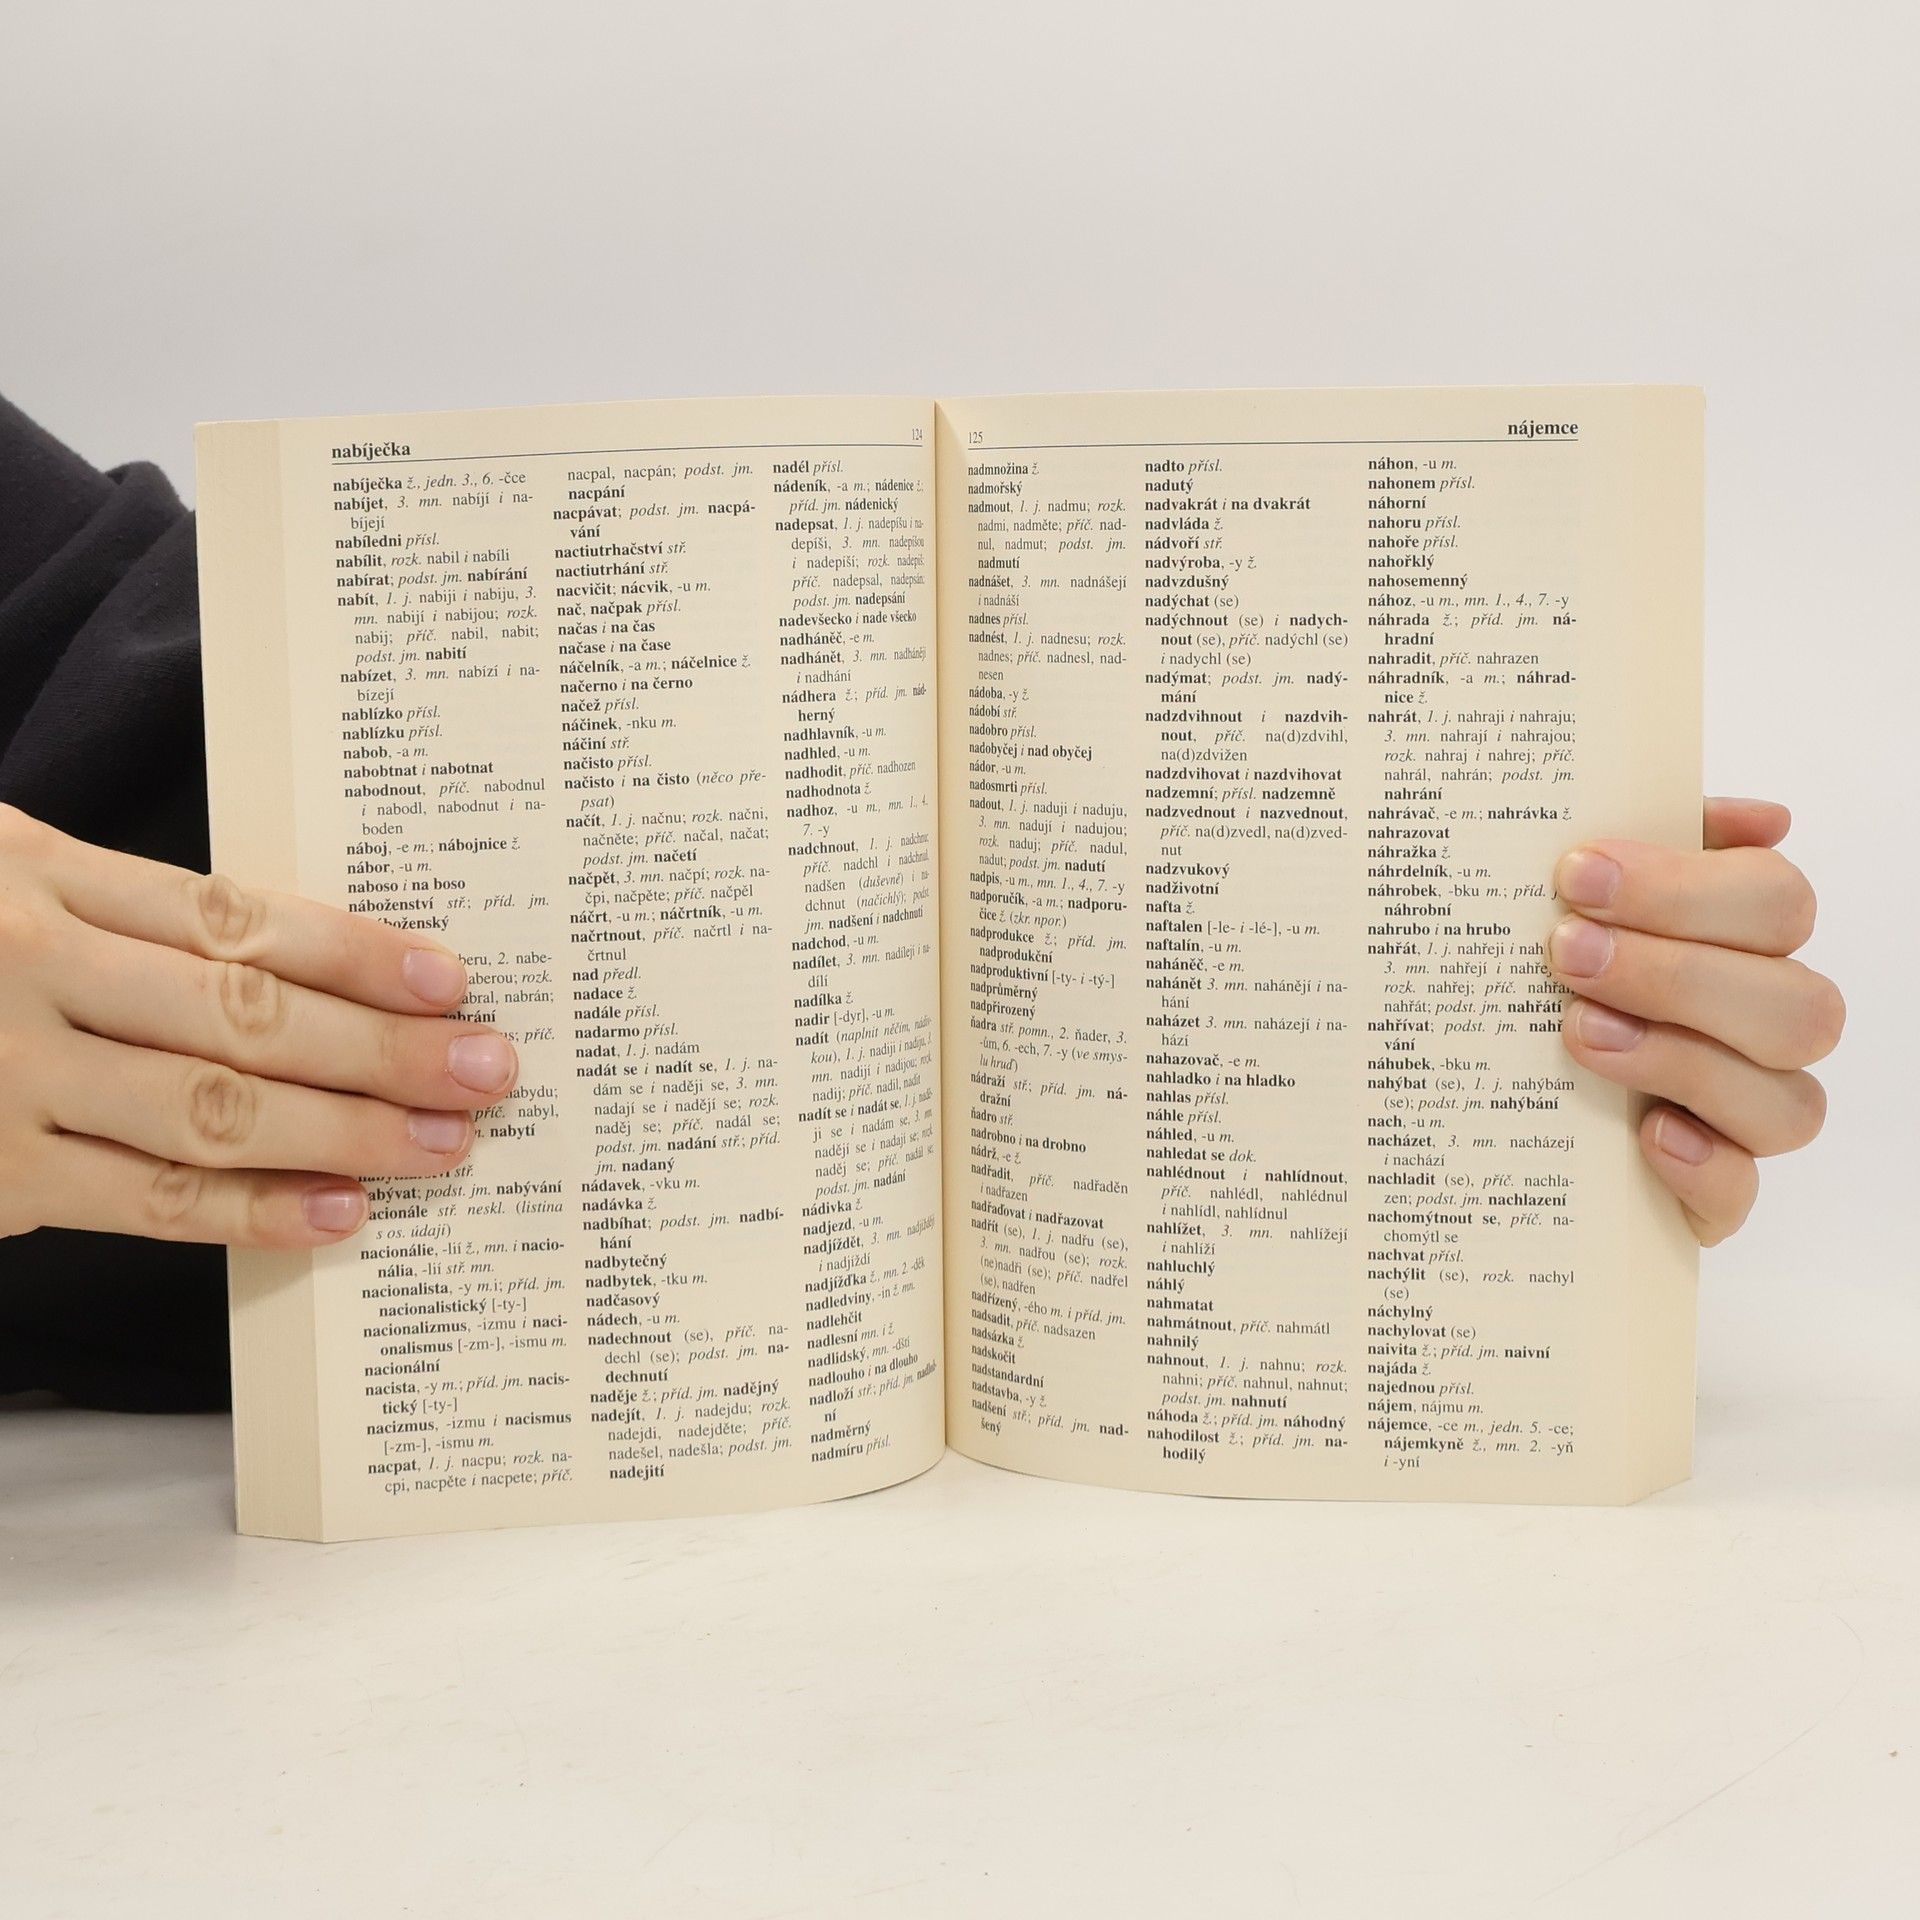 nabíječka
124
nabíječka ž., jedn. 3., 6. -čce
nabíjet, 3. mn. nabíjí i na-
bíjejí
nabíledni přísl.
nabílit, rozk. nabil i nabíli
nabírat; podst. jm. nabírání
nabít, 1. j. nabiji i nabiju, 3.
mn. nabijí i nabijou; rozk.
nabij; příč. nabil, nabit;
podst. jm. nabití
nabízet, 3. mn. nabízí i na-
bízejí
nablízko přísl.
nablízku přísl.
nabob, -a m.
nabobtnat i nabotnat
nabodnout, příč. nabodnul
i nabodl, nabodnut i na-
boden
náboj, -e m.; nábojnice ž.
nábor, -u m.
naboso i na boso
náboženství stř.; příd. jm.
náboženský
beru, 2. nabe-
aberou; rozk.
abral, nabrán;
nabrání
příč.
nabydu;
příč. nabyl,
nabytí
stř.
nabývat; podst. jm. nabývání
nacionále stř. neskl. (listina
s os. údaji)
nacionálie, -lií ž., mn. i nacio-
nália, -lií stř. mn.
nacionalista, -y m.; příd. jm.
nacionalistický [-ty-]
nacionalizmus, -izmu i naci-
onalismus [-zm-], -ismu m.
nacionální
nacista, -y m.; příd. jm. nacis-
tický [-ty-]
nacizmus, -izmu i nacismus
[-zm-], -ismu m.
nacpat, 1. j. nacpu; rozk. na-
cpi, nacpěte i nacpete; příč.
nacpal, nacpán; podst. jm.
nacpání
nacpávat; podst. jm. nacpá-
vání
nactiutrhačství stř.
nactiutrhání stř.
nacvičit; nácvik, -u m.
nač, načpak přísl.
načas i na čas
načase i na čase
náčelník, -a m.; náčelnice ž.
načerno i na černo
načež přísl.
náčinek, -nku m.
náčiní stř.
načisto přísl.
načisto i na čisto (něco pře-
psat)
načít, 1. j. načnu; rozk. načni,
načněte; příč. načal, načat;
podst. jm. načetí
načpět, 3. mn. načpí; rozk. na-
čpi, načpěte; příč. načpěl
náčrt, -u m.; náčrtník, -u m.
načrtnout, příč. načrtl i na-
črtnul
nad předl.
nadace ž.
nadále přísl.
nadarmo přísl.
nadat, 1. j. nadám
nadát se i nadít se, 1. j. na-
dám se i naději se, 3. mn.
nadají se i nadějí se; rozk.
naděj se; příč. nadál se;
podst. jm. nadání stř.; příd.
jm. nadaný
nádavek, -vku m.
nadávka ž.
nadbíhat; podst. jm. nadbí-
hání
nadbytečný
nadbytek, -tku m.
nadčasový
nádech, -u m.
nadechnout (se), příč. na-
dechl (se); podst. jm. na-
dechnutí
naděje ž.; příd. jm. nadějný
nadejít, 1. j. nadejdu; rozk.
nadejdi, nadejděte; příč.
nadešel, nadešla; podst. jm.
nadejití
nadél přísl.
nádeník, -a m.; nádenice ž.;
příd. jm. nádenický
nadepsat, 1. j. nadepíšu i na-
depíši, 3. mn. nadepíšou
i nadepíší; rozk. nadepiš;
příč. nadepsal, nadepsán;
podst. jm. nadepsání
nadevšecko i nade všecko
nadháněč, -e m.
nadhánět, 3. mn. nadhánějí
i nadhání
nádhera ž.; příd. jm. nád-
herný
nadhlavník, -u m.
nadhled, -u m.
nadhodit, příč. nadhozen
nadhodnota ž.
nadhoz, -u m., mn. 1., 4.,
7. -y
nadchnout, 1. j. nadchnu;
příč. nadchl i nadchnul,
nadšen (duševně) i na-
dchnut (načichlý); podst.
jm. nadšení i nadchnutí
nadchod, -u m.
nadílet, 3. mn. nadílejí i na-
dílí
nadílka ž.
nadir [-dyr], -u m.
nadít (naplnit něčím, nádiv-
kou), 1. j. nadiji i nadiju, 3.
mn. nadijí i nadijou; rozk.
nadij; příč. nadil, nadit
nadít se i nadát se, 1. j. nadě-
ji se i nadám se, 3. mn.
nadějí se i nadají se; rozk.
naděj se; příč. nadál se;
podst. jm. nadání
nádivka ž.
nadjezd, -u m.
nadjíždět, 3. mn. nadjíždějí
i nadjíždí
nadjížďka ž., mn. 2. -děk
nadledviny, -in ž. mn.
nadlehčit
nadlesní mn. i ž.
nadlidský, mn. -dští
nadlouho i na dlouho
nadloží stř.; příd. jm. nadlož-
ní
nadměrný
nadmíru přísl.
125
nájemce
nadmnožina ž.
nadmořský
nadmout, 1. j. nadmu; rozk.
nadmi, nadměte; příč. nad-
nul, nadmut; podst. jm.
nadmutí
nadnášet, 3. mn. nadnášejí
i nadnáší
nadnes přísl.
nadnést, 1. j. nadnesu; rozk.
nadnes; příč. nadnesl, nad-
nesen
nádoba, -y ž.
nádobí stř.
nadobro přísl.
nadobyčej i nad obyčej
nádor, -u m.
nadosmrti přísl.
nadout, 1. j. naduji i naduju,
3. mn. nadují i nadujou;
rozk. naduj; příč. nadul,
nadut; podst. jm. nadutí
nadpis, -u m., mn. 1., 4., 7. -y
nadporučík, -a m.; nadporu-
čice ž. (zkr. npor.)
nadprodukce ž.; příd. jm.
nadprodukční
nadproduktivní [-ty- i -tý-]
nadprůměrný
nadpřirozený
ňadra stř. pomn., 2. ňader, 3.
-ům, 6. -ech, 7. -y (ve smys-
lu hruď)
nádraží stř.; příd. jm. ná-
dražní
ňadro stř.
nadrobno i na drobno
nádrž, -e ž.
nadřadit, příč. nadřaděn
i nadřazen
nadřaďovat i nadřazovat
nadřít (se), 1. j. nadřu (se),
3. mn. nadřou (se); rozk.
(ne)nadři (se); příč. nadřel
(se), nadřen
nadřízený, -ého m. i příd. jm.
nadsadit, příč. nadsazen
nadsázka ž.
nadskočit
nadstandardní
nadstavba, -y ž.
nadšení stř.; příd. jm. nad-
šený
nadto přísl.
nadutý
nadvakrát i na dvakrát
nadvláda ž.
nádvoří stř.
nadvýroba, -y ž.
nadvzdušný
nadýchat (se)
nadýchnout (se) i nadych-
nout (se), příč. nadýchl (se)
i nadychl (se)
nadýmat; podst. jm. nadý-
mání
nadzdvihnout i nazdvih-
nout, příč. na(d)zdvihl,
na(d)zdvižen
nadzdvihovat i nazdvihovat
nadzemní; přísl. nadzemně
nadzvednout i nazvednout,
příč. na(d)zvedl, na(d)zved-
nut
nadzvukový
nadživotní
nafta ž.
naftalen [-le- i -lé-], -u m.
naftalín, -u m.
naháněč, -e m.
nahánět 3. mn. nahánějí i na-
hání
naházet 3. mn. naházejí i na-
hází
nahazovač, -e m.
nahladko i na hladko
nahlas přísl.
náhle přísl.
náhled, -u m.
nahledat se dok.
nahlédnout i nahlídnout,
příč. nahlédl, nahlédnul
i nahlídl, nahlídnul
nahlížet, 3. mn. nahlížejí
i nahlíží
nahluchlý
náhlý
nahmatat
nahmátnout, příč. nahmátl
nahnilý
nahnout, 1. j. nahnu; rozk.
nahni; příč. nahnul, nahnut;
podst. jm. nahnutí
náhoda ž.; příd. jm. náhodný
nahodilost ž.; příd. jm. na-
hodilý
náhon, -u m.
nahonem přísl.
náhorní
nahoru přísl.
nahoře přísl.
nahořklý
nahosemenný
nához, -u m., mn. 1., 4., 7. -y
náhrada ž.; příd. jm. ná-
hradní
nahradit, příč. nahrazen
náhradník, -a m.; náhrad-
nice ž.
nahrát, 1. j. nahraji i nahraju;
3. mn. nahrají i nahrajou;
rozk. nahraj i nahrej; příč.
nahrál, nahrán; podst. jm.
nahrání
nahrávač, -e m.; nahrávka ž.
nahrazovat
náhražka ž.
náhrdelník, -u m.
náhrobek, -bku m.; příd.
náhrobní
nahrubo i na hrubo
nahřát, 1. j. nahřeji i nah
3. mn. nahřejí i nahře
rozk. nahřej; příč. nahřál,
nahřát; podst. jm. nahřátí
nahřívat; podst. jm. nahř
vání
náhubek, -bku m.
nahýbat (se), 1. j. nahýbám
(se); podst. jm. nahýbání
nach, -u m.
nacházet, 3. mn. nacházejí
i nachází
nachladit (se), příč. nachla-
zen; podst. jm. nachlazení
nachomýtnout se, příč. na-
chomýtl se
nachvat přísl.
nachýlit (se), rozk. nachyl
(se)
náchylný
nachylovat (se)
naivita ž.; příd. jm. naivní
najáda ž.
najednou přísl.
nájem, nájmu m.
nájemce, -ce m., jedn. 5. -ce;
nájemkyně ž., mn. 2. -yň
i -yní